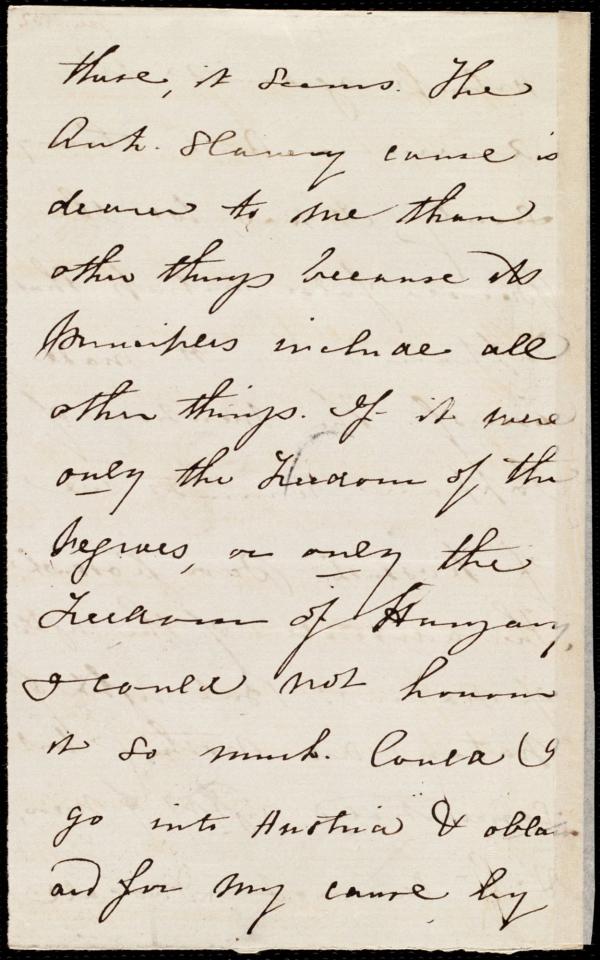 those, it seems. The
Anti. Slavery cause is
dearer to me than
other things because its
principles include all
other things. If it were
only the Freedom of the
Negroes, or only the
Freedom of Hungary,
I could not honour
it so much. Could I
go into Austria & obtain
aid for my cause by